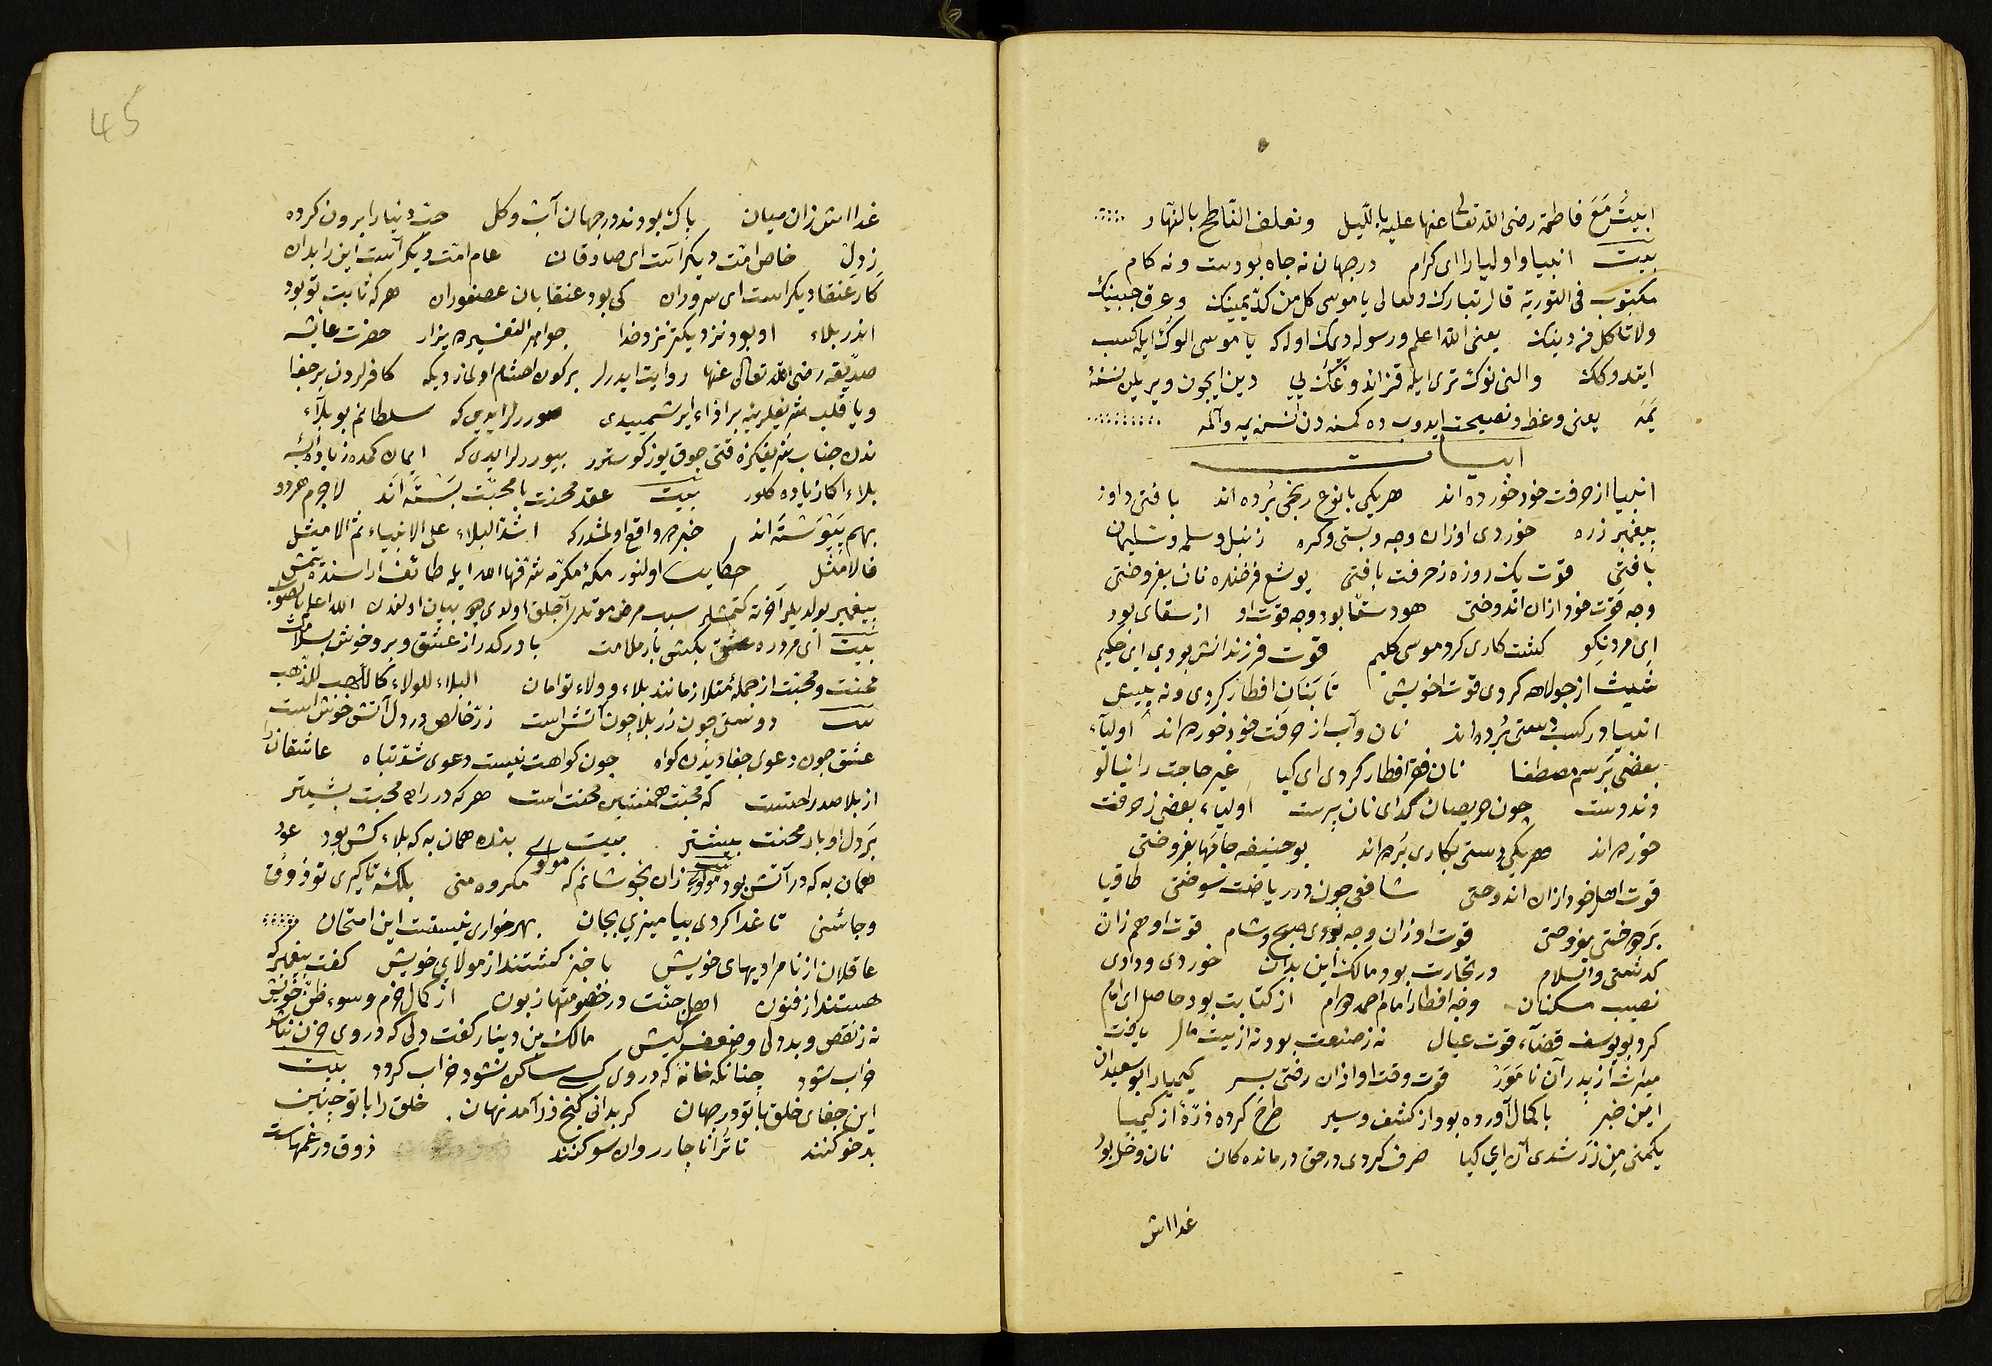 ابيتُ مَعَ فاطمه رضی الله تعالی عنها علیه باللّیل ونعلف النّاطح بالنّهار
بیت انبیا واولیارا ای کرام درجهان نه جاه بودست ونه کام
مکتوب فی التوریة قال تبارك وتعالی یا موسی کل من کدّ یمینك وعرق جبینك
ولا تأکل من دینك یعنی الله اعلم ورسوله دیمك اوله که یا موسی الوك ایله کسب
ایتدوکك والنی نوك تری ایله قزاندوغکی یی دین ایچون ویریلن نسنه
یمه یعنی وعظ ونصیحت ایدوب ده کمسنه دن نسنه یه والمه
ابیات
انبیا از حرفت خود خورده اند هریکی با نوع رنجی برده اند بافتی داود
پیغمبر زره خوردی اوزان وجه وبستی وکره زنبیل وسله وسلیمان
بافتی قوت یك روزه زحرفت یافتی یوشع فرخنده نان بفروختی
وجه قوت خود ازان اندوختی هود سقّا بود وجه قوت او از سقای بود
ای مرد نکو کشت کاری کرد موسی کلیم قوت فرزندانش بودی ای حکیم
شیث از جولاهه کردی قوت خویش تا بنان افطار کردی ونه بیش
انبیا در کسب دستی برده اند نان وآب از حرفت خود خورده اند اولیآء
بعضی برسم مصطفا نان فقر افطار کردی ای کیا غیر حاجت را نیالو
دند دست چون حریصان کدای نان پرست اولیاء بعضی زحرفت
خورده اند هریکی دستی بکاری برده اند بوحنیفه جامها بفروختی
قوت اهل خود ازان اندوختی شافعی چون در ریاضت سوختی طاقیا
بر دوختی بفروختی قوت او زان وجه بودی صبح وشام قوت او هم زان
کدشتی والسلام در تجارت بود مالك این بدان خوردی ودادی
نصیب مسکنان وجه افطار امام احمد مرام از کتابت بود حاصل ای امام
کرد بویوسف قضآء قوت عیال نه زصنعت بود نه از بیت مال یافت
میراث از پدر آن نامور قوت وقت او ازان رفتی بسر کیمیا را بوسعیدان
امین خبر با کمال آورده بود از کشف وسیر طرح کرده ذرّهٔ از کیمیا
یکمنی مس زر شدی آن ای کیا صرف کردی درحق درمانده کان نان وخل بود
غدااش
45
غدااش زان میان پاك بودند در جهان آب وکل حبّ دنیا را برون کرده
زدل خاص امّت دیکر است ای صادقان عام امّت دیکر است این را بدان
کار عنقا دیکر است ای سروران کی بود عنقا بان عصفوران هرکه ثابت تر بود
اندر بلاء او بود نزدیکتر نزد خدا جواهر التفسیرده یزار حضرت عایشه
صدّیقه رضی الله تعالی عنها روایت ایدرلر برکون اهتمام اولمازدیکه کافرلردن بر جفا
ویا قلب شریفلرینه بر اذاء ایرشمییدی بیوررلر ایدی که سلطانم بو بلآء
ندن جناب شریفکزه قتی چوق یوز کوسترر بیوررلر ایدی که ایمان کمده زیاده ایسه
بلاء اکا زیاده کلور بیت عقد محنت با محبّت بسته اند لاجرم هردو
بهم پیوسته اند خبرده واقع اولمشدرکه اشدّ البلاء علی الانبیاء ثمّ الامثل
فالامثل حکایت اولنور مکهٔ مکرّمه شرّفها الله ایله طائف اراسنده یتمش
پیغمبر بولدیلر آخرته کتمشلر سبب مرض موتلری آجلق اولدی بیان اولندی الله اعلم بالصواب
بیت ای مرد ره عشق بکش بار ملامت باور کدر از عشق وبرو خوش سلامت
محنت ومحبّت از جملهٔ متلازمانند بلاء وولاء توامان البلاء للولاء کاللهب للذهب
بیت دوستی چون زر بلا چون آتش است زرّ خالص در دل آتش خوش است
عشق چون دعوی جفا دیدن کواه چون کواهت نیست دعوی شد تباه عاشقانرا
از بلا صد راحتست که محبّت همنشین محنت است هرکه در راه محبت پیشتر
بر دل او بار محنت بیشتر بیت بنده همان به که بلاء کش بود عود
همان به که در آتش بود مولوی زان بجوشانم که مکروه منی بلکه تا کیری تو ذوق
وچاشنی تا غدا کردی بیامیزی بجان بهر خواری نیستت این امتحان
عاقلان از نامرادیهای خویش با خبر کشتند از مولای خویش کفت پیغمبر که
هستند از فنون اهل جنّت در خصومتها زبون از کمال حزم وسوء ظنّ خویش
نه زنقص وبددلی وضعف کیش مالك بن دینار کفت دلی که دروی حزن نباشد
خراب شود چنانکه خانه که دروی کسی ساکن نشود خراب کردد بیت
این جفای خلق با تو در جهان کر بدانی کنج زر آمد نهان خلق را با تو چنین
بدخو کنند تا ترا ناچار رو آن سو کنند ذوق در غمهاست